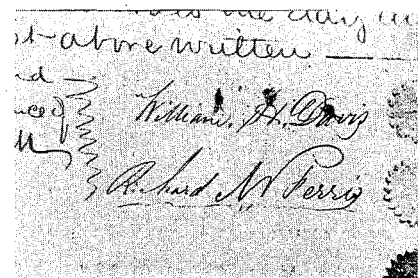 the day
st above written
William. H. Davis
Richard N Ferris